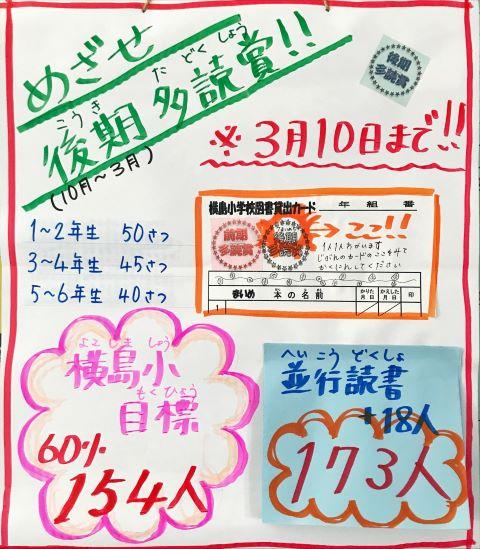 めざせ
後期多読賞!!
こうき
た どくしょう
(10月~3月)
後期
多読賞
※3月10日まで!!
1~2年生 50さつ
3~4年生 45さつ
5~6年生 40さつ
横島小学校図書貸出カード 年 組 番
前期
多読賞
後期
多読賞
ここ!!
1人1人ちがいます
じぶんのカードのここをみて
かくにんしてください
まいめ 本の名前 かりた月日 かえした月日 印
よこしましょう
横島小
もくひょう
目標
60%
154人
へいこうどくしょ
並行読書
+18人
173人